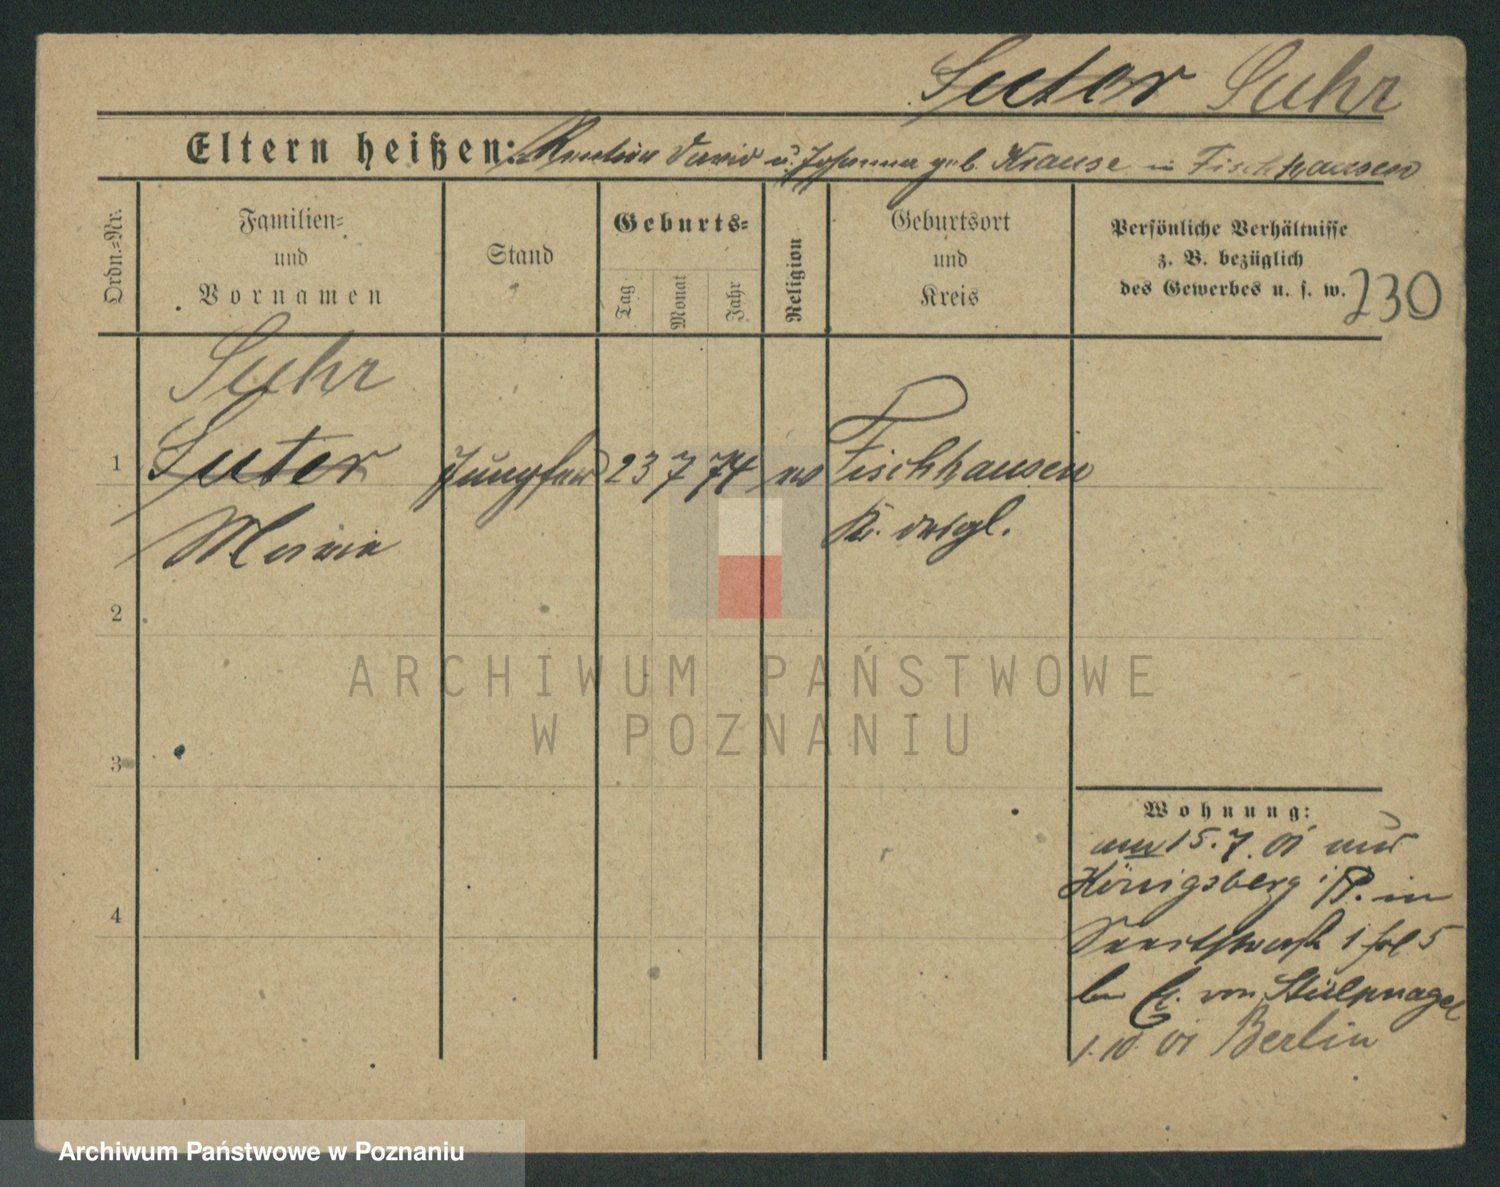 Suter Suhr
Eltern heißen: Rentier David u. Johanna geb. Krause in Fischhausen
Ordn.=Nr.
Familien=
und
Vornamen
Stand
Geburts=
Tag
Monat
Jahr
Religion
Geburtsort
und
Kreis
Persönliche Verhältnisse
z. B. bezüglich
des Gewerbes u. s. w.
230
Suhr
1 Suter Jungfer 23 7 74 ev Fischhausen
Maria Kr. desgl.
2
3
4
ARCHIWUM PAŃSTWOWE
W POZNANIU
Wohnung:
am 15.7.01 aus
Königsberg i/P. in
1 5
bei von Stülpnagel
1.10.01 Berlin
Archiwum Państwowe w Poznaniu